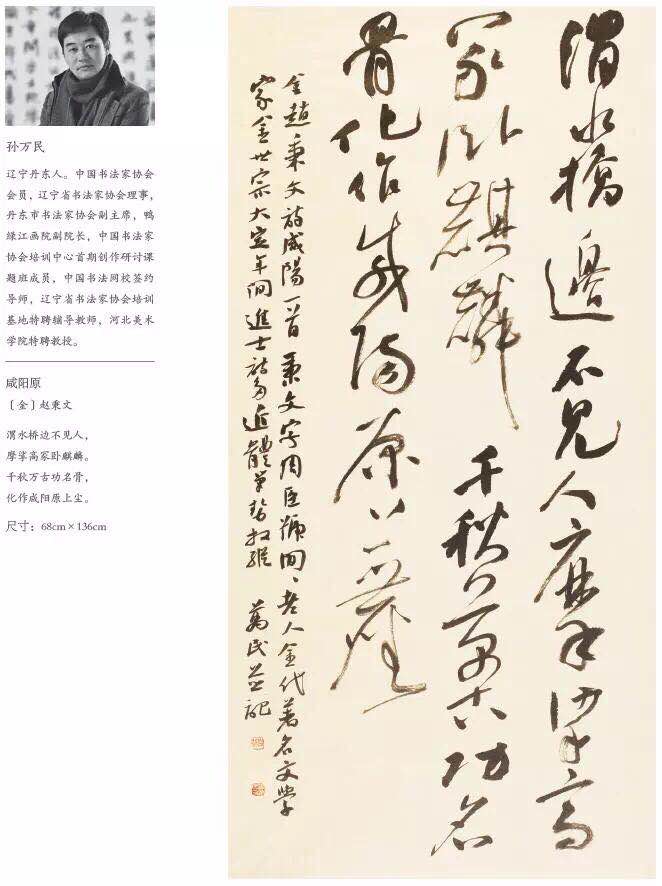 孙万民
辽宁丹东人。中国书法家协会
会员，辽宁省书法家协会理事，
丹东市书法家协会副主席，鸭
绿江画院副院长，中国书法家
协会培训中心首期创作研讨课
题班成员，中国书法网校签约
导师，辽宁省书法家协会培训
基地特聘辅导教师，河北美术
学院特聘教授。
咸阳原
〔金〕赵秉文
渭水桥边不见人，
摩挲高冢卧麒麟。
千秋万古功名骨，
化作咸阳原上尘。
尺寸：68cm×136cm
渭水橋邊不見人摩挲高
冢卧麒麟千秋萬古功名
骨化作咸陽原上塵
金趙秉文詩咸陽一首秉文字周臣號閑、老人金代著名文學
家金世宗大定年間進士詩多近體筆勢放縱 萬民並記